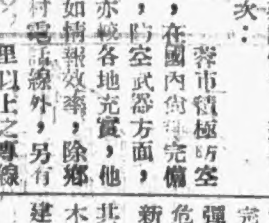 次：
蓉市積極防空
，在國內尚稱完備
，防空武器方面，
亦較各地充實，他
如情報效率，除鄉
村電話線外，另有
里以上之專線
完
彈
危
新
北
木
建